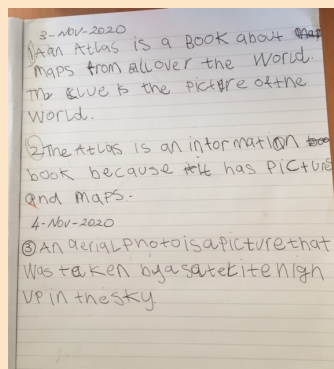 3-Nov-2020
① An Atlas is a Book about map
maps from all over the World.
The clue is the picture of the
World.
② The Atlas is an information boo
book because it has Picture
and maps.
4-Nov-2020
③ An aerial photo is a picture that
was taken by a satelite high
up in the sky.